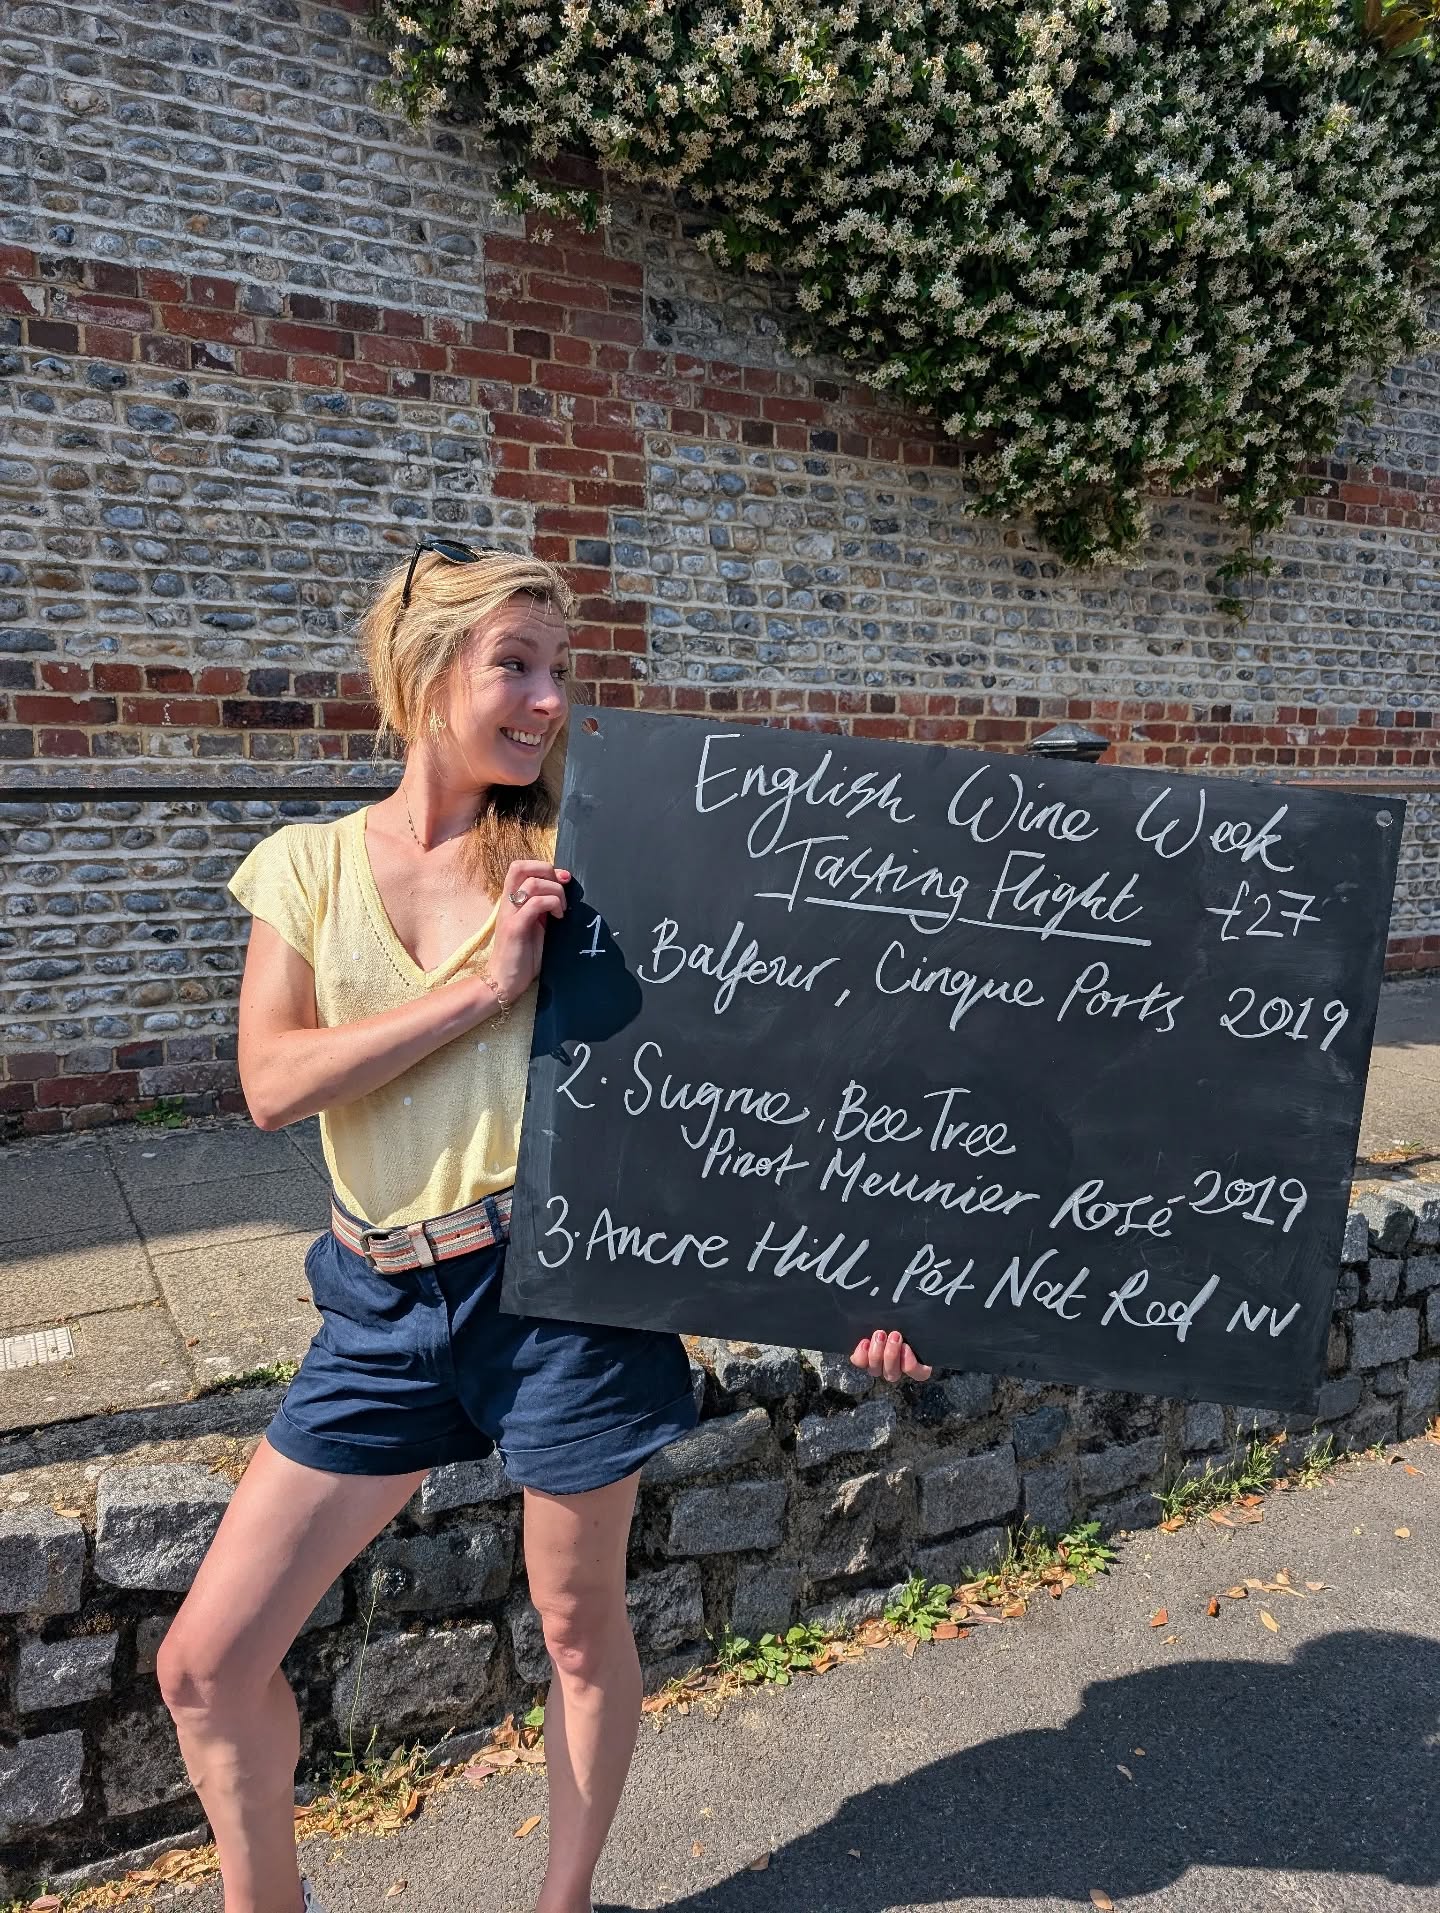 English Wine Week
Tasting Flight £27
1. Balfour, Cinque Ports 2019
2. Sugrue, Bee Tree
Pinot Meunier Rosé 2019
3. Ancre Hill, Pét Nat Red NV